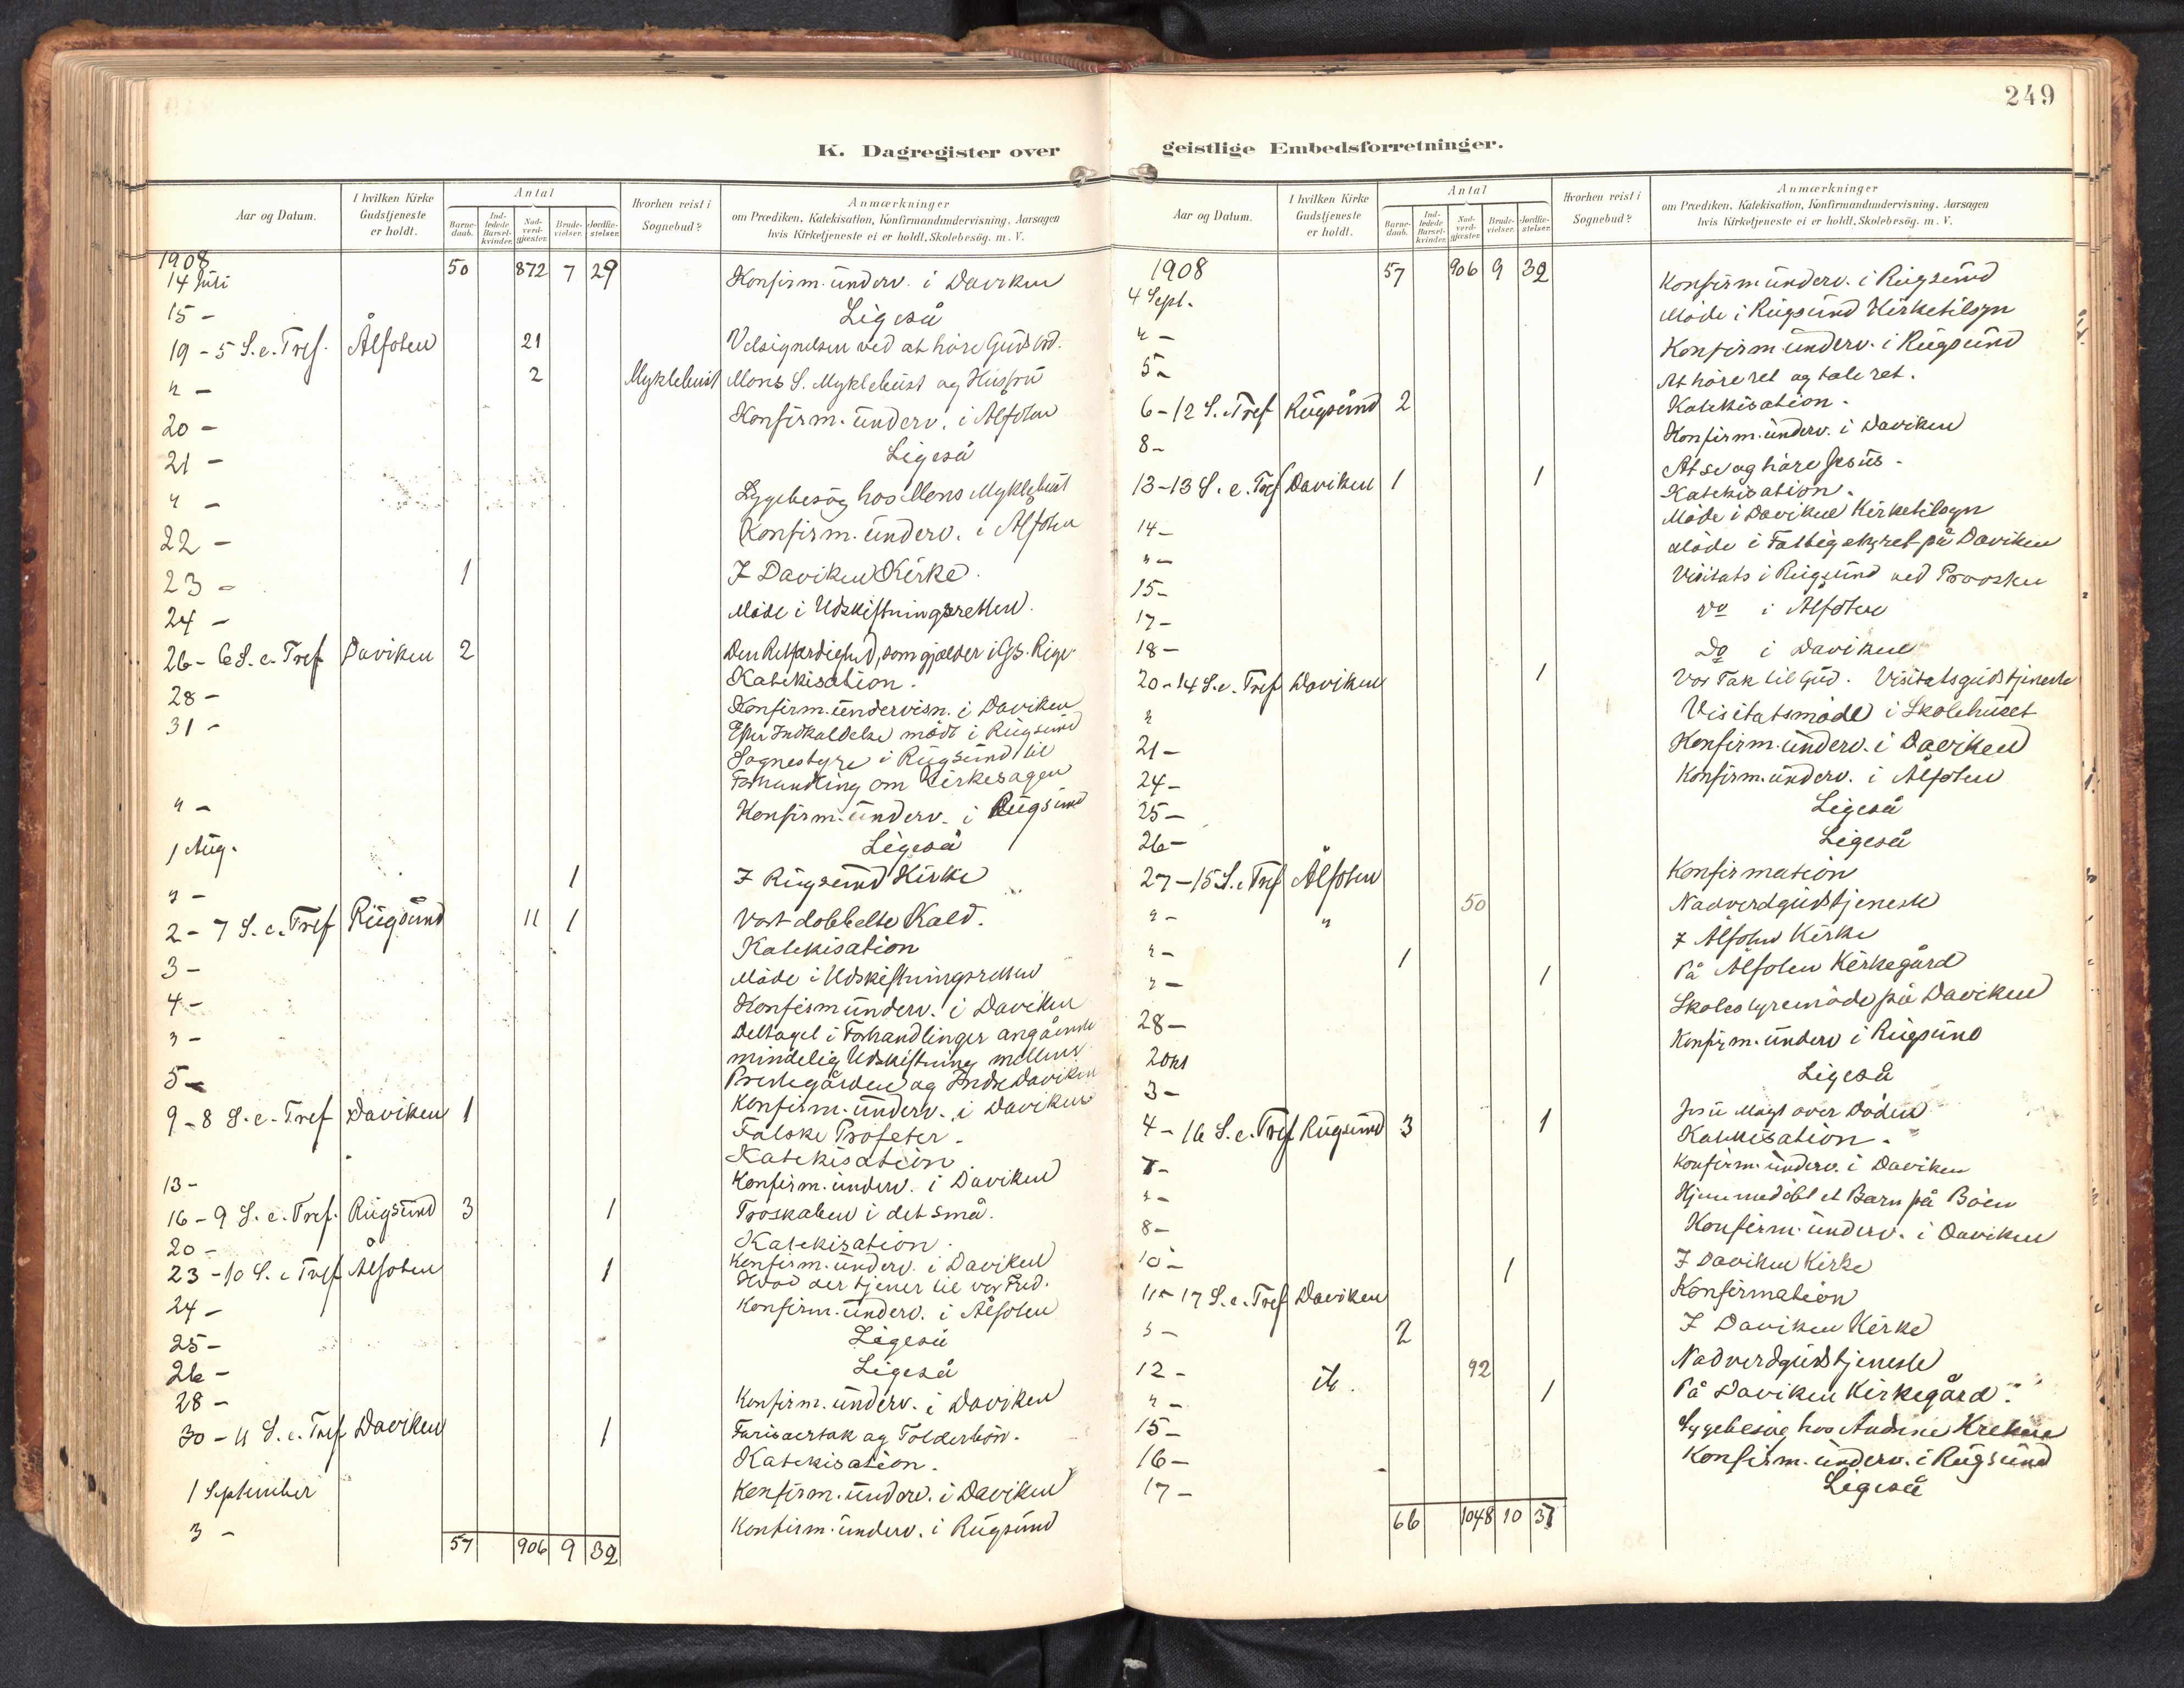 249
K. Dagregister over geistlige Embedsforretninger.
Aar og Datum.
I hvilken Kirke Gudstjeneste er holdt.
Antal
Barne-daab.
Ind-ledede Barsel-kvinder.
Nad-verd-gjester.
Brude-vielser.
Jordfæ-stelser.
Hvorhen reist i Sognebud?
Anmærkninger
om Prædiken, Katekisation, Konfirmandundervisning, Aarsagen
hvis Kirketjeneste ei er holdt, Skolebesög. m. V.
1908 50 872 7 29
14 Juli Konfirm. underv. i Daviken
15 - Ligeså
19 - 5 S. e. Tref. Ålfoten 21 Velsignelsen ved at høre Guds ord.
" - 2 Myklebust Mons S. Myklebust og Hustru
20 - Konfirm. underv. i Alfoten
21 - Ligeså
" - Sygebesøg hos Mons Myklebust
22 - Konfirm. underv. i Alfoten
23 - 1 I Daviken Kirke.
24 - Møde i Udskiftningsretten.
26 - 6 S. e. Tref Daviken 2 Den Retfærdighed, som gjælder i Gs. Rige.
Katekisation.
28 - Konfirm. undervisn. i Daviken
31 - Efter Indkaldelse mødt i Rugsund
Sognestyre i Rugsund til
Forhandling om Kirkesagen
" - Konfirm. underv. i Rugsund
1 Aug. Ligeså
" - 1 I Rugsund Kirke
2 - 7 S. e. Tref Rugsund 11 1 Vort dobbelte Kald.
Katekisation
3 - Møde i Udskiftningsretten
4 - Konfirm underv. i Daviken
" - Deltaget i Forhandlinger angående
mindelig Udskiftning mellem
Prestegården og Indre Daviken
5 - Konfirm. underv. i Daviken
9 - 8 S. e. Tref Daviken 1 Falske Profeter.
Katekisation.
13 - Konfirm. underv. i Daviken
16 - 9 S. e. Tref. Rugsund 3 1 Troskaben i det små.
Katekisation.
20 - Konfirm. underv. i Daviken
23 - 10 S. e Tref Ålfoten 1 Hvad der tjener til vor Fred.
24 - Konfirm. underv. i Ålfoten
25 - Ligeså
26 - Ligeså
28 - Konfirm. underv. i Daviken
30 - 11 S. e. Tref Daviken 1 Farisæertak og Tolderbøn.
Katekisation.
1 September Konfirm. underv. i Daviken
3 - Konfirm. underv. i Rugsund
57 906 9 32
Aar og Datum.
I hvilken Kirke Gudstjeneste er holdt.
Antal
Barne-daab.
Ind-ledede Barsel-kvinder.
Nad-verd-gjester.
Brude-vielser.
Jordfæ-stelser.
Hvorhen reist i Sognebud?
Anmærkninger
om Prædiken, Katekisation, Konfirmandundervisning, Aarsagen
hvis Kirketjeneste ei er holdt, Skolebesög. m. V.
1908 57 906 9 32
4 Sept. Konfirm underv. i Rugsund
" - Møde i Rugsund Kirketilsyn
5 - Konfirm underv. i Rugsund
6 - 12 S. e. Tref Rugsund 2 At høre ret og tale ret.
Katekisation.
8 - Konfirm. underv. i Daviken
13 - 13 S. e. Tref Daviken 1 1 At se og høre Jesus.
Katekisation.
14 - Møde i Daviken Kirketilsyn
" - Møde i Fattigstyret på Daviken
15 - Visitats i Rugsund ved Provsten
17 - Do i Alfoten
18 - Do i Daviken
20 - 14 S. e. Tref Daviken 1 Vor Tak til Gud. Visitatsgudstjeneste
" Visitatsmøde i Skolehuset
21 - Konfirm. underv. i Daviken
24 - Konfirm. underv. i Ålfoten
25 - Ligeså
26 - Ligeså
27 - 15 S. e Tref Ålfoten Konfirmation
" - " 50 Nadverdgudstjeneste
" - 1 I Ålfoten Kirke
" - 1 På Ålfoten Kirkegård
28 - Skolestyremøde på Daviken
2 Okt Konfirm. underv i Rugsund
3 - Ligeså
4 - 16 S. e. Tref Rugsund 3 1 Jesu Magt over Døden
Katekisation.
7 - Konfirm. underv. i Daviken
" - Hjemmedøbt et Barn på Bøen
8 - Konfirm. underv. i Daviken
10 - 1 I Daviken Kirke
11 - 17 S. e. Tref Daviken Konfirmation
" - 2 I Daviken Kirke
12 - do. 92 Nadverdgudstjeneste
" - 1 På Daviken Kirkegård.
15 - Sygebesøg hos Andrine
16 - Konfirm. underv. i Rugsund
17 - Ligeså
66 1048 10 37